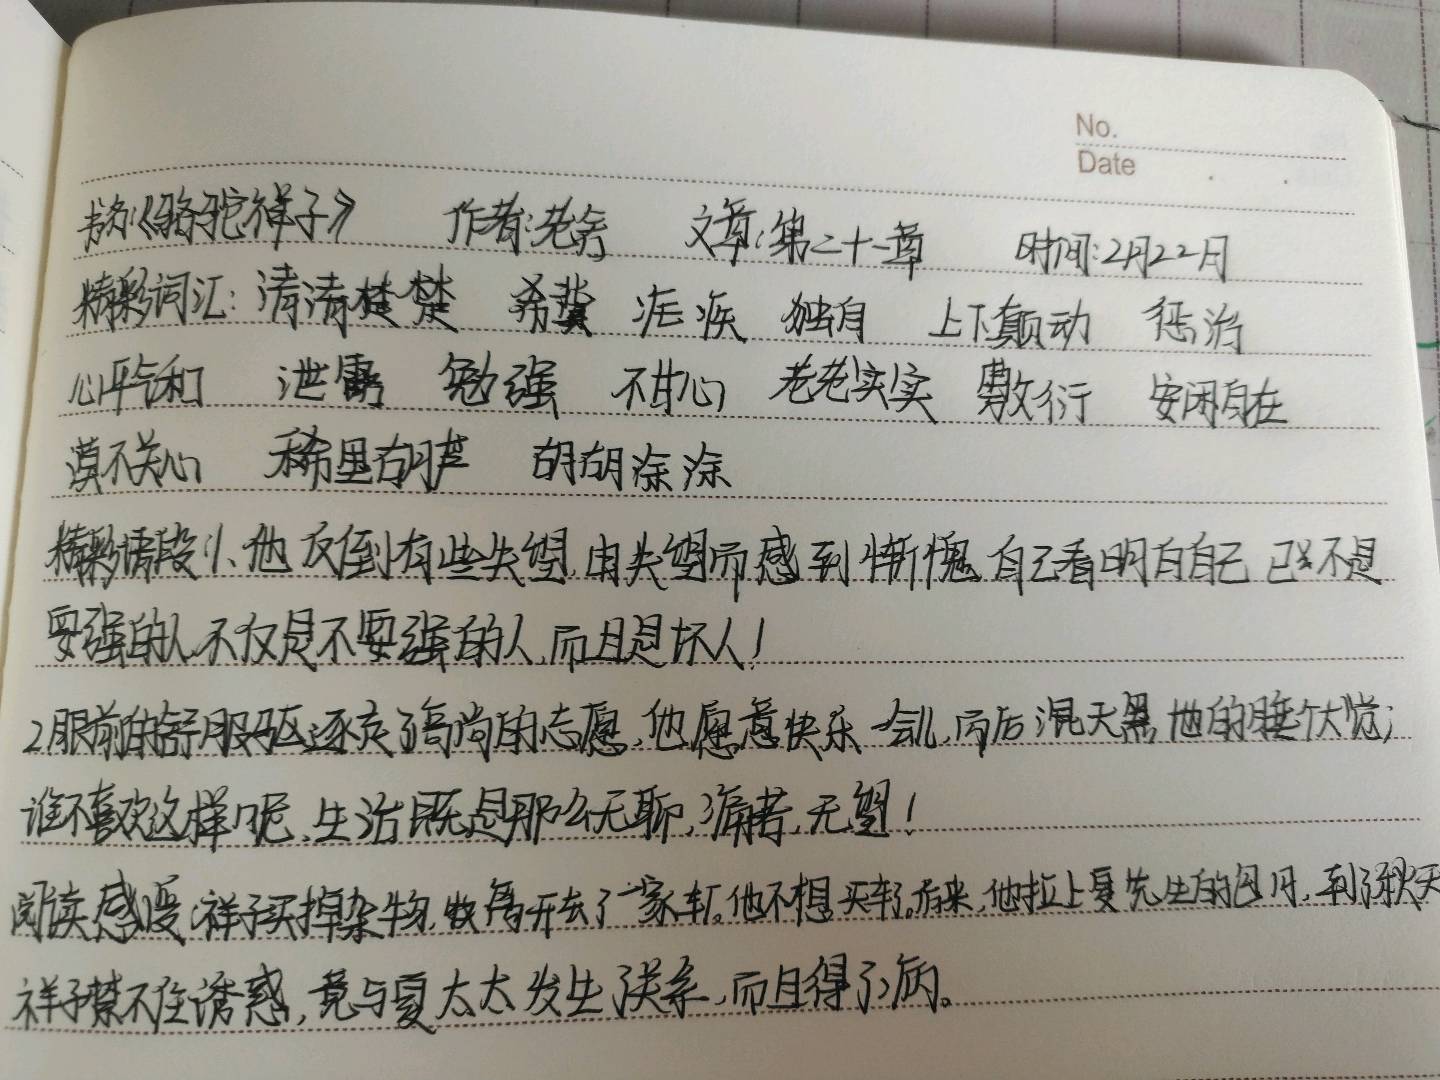 No.
Date
书名:《骆驼祥子》 作者:老舍 文章:第二十一章 时间:2月22月
精彩词汇:清清楚楚 希冀 疟疾 独自 上下颠动 惩治
心平气和 泄露 勉强 不甘心 老老实实 敷衍 安闲自在
漠不关心 稀里葫芦 胡胡涂涂
精彩语段:1、他反倒有些失望,由失望而感到惭愧,自己看明白自己已不是
要强的人,不仅是不要强的人,而且是坏人!
2眼前的舒服驱逐走了高尚的志愿,他愿意快乐一会儿,而后混天黑地的睡个大觉;
谁不喜欢这样呢,生活既是那么无聊,痛苦,无望!
阅读感受:祥子买掉杂物,收离开去了一家车厂。他不想买车了。后来,他拉上夏先生的包月,到了秋天
祥子禁不住诱惑,竟与夏太太发生了关系,而且得了病。